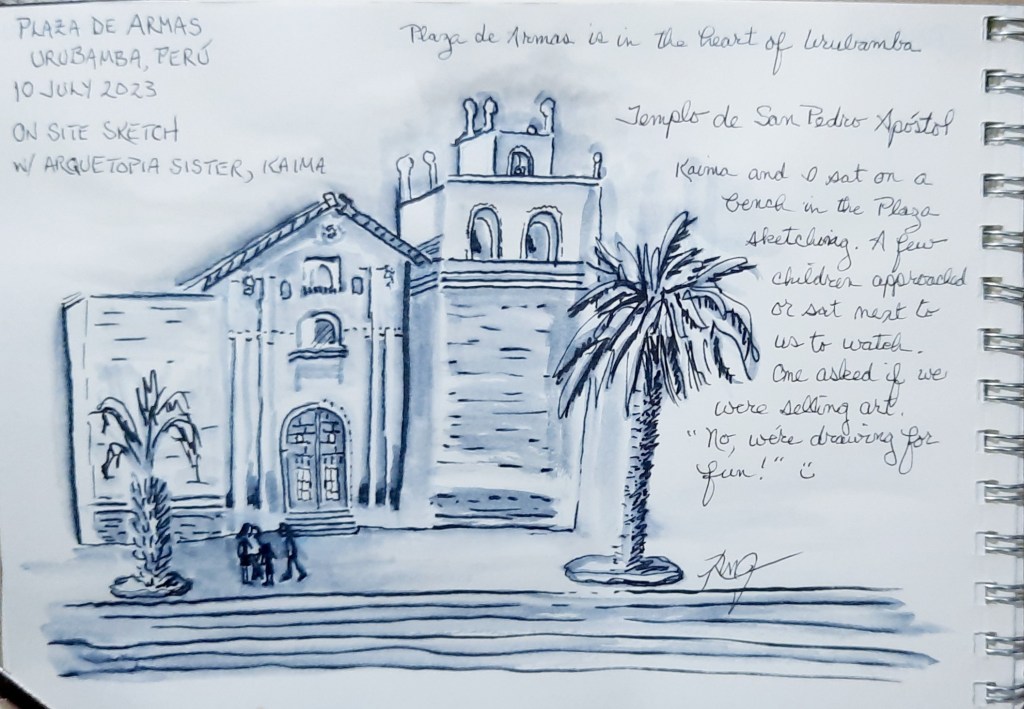 PLAZA DE ARMAS
URUBAMBA, PERÚ
10 JULY 2023
ON SITE SKETCH
W/ ARQUETOPIA SISTER, KAIMA
Plaza de Armas is in the heart of Urubamba
Templo de San Pedro Apóstol
Kaima and I sat on a
bench in the Plaza
sketching. A few
children approached
or sat next to
us to watch.
One asked if we
were selling art.
"No, we're drawing for
fun!" :)